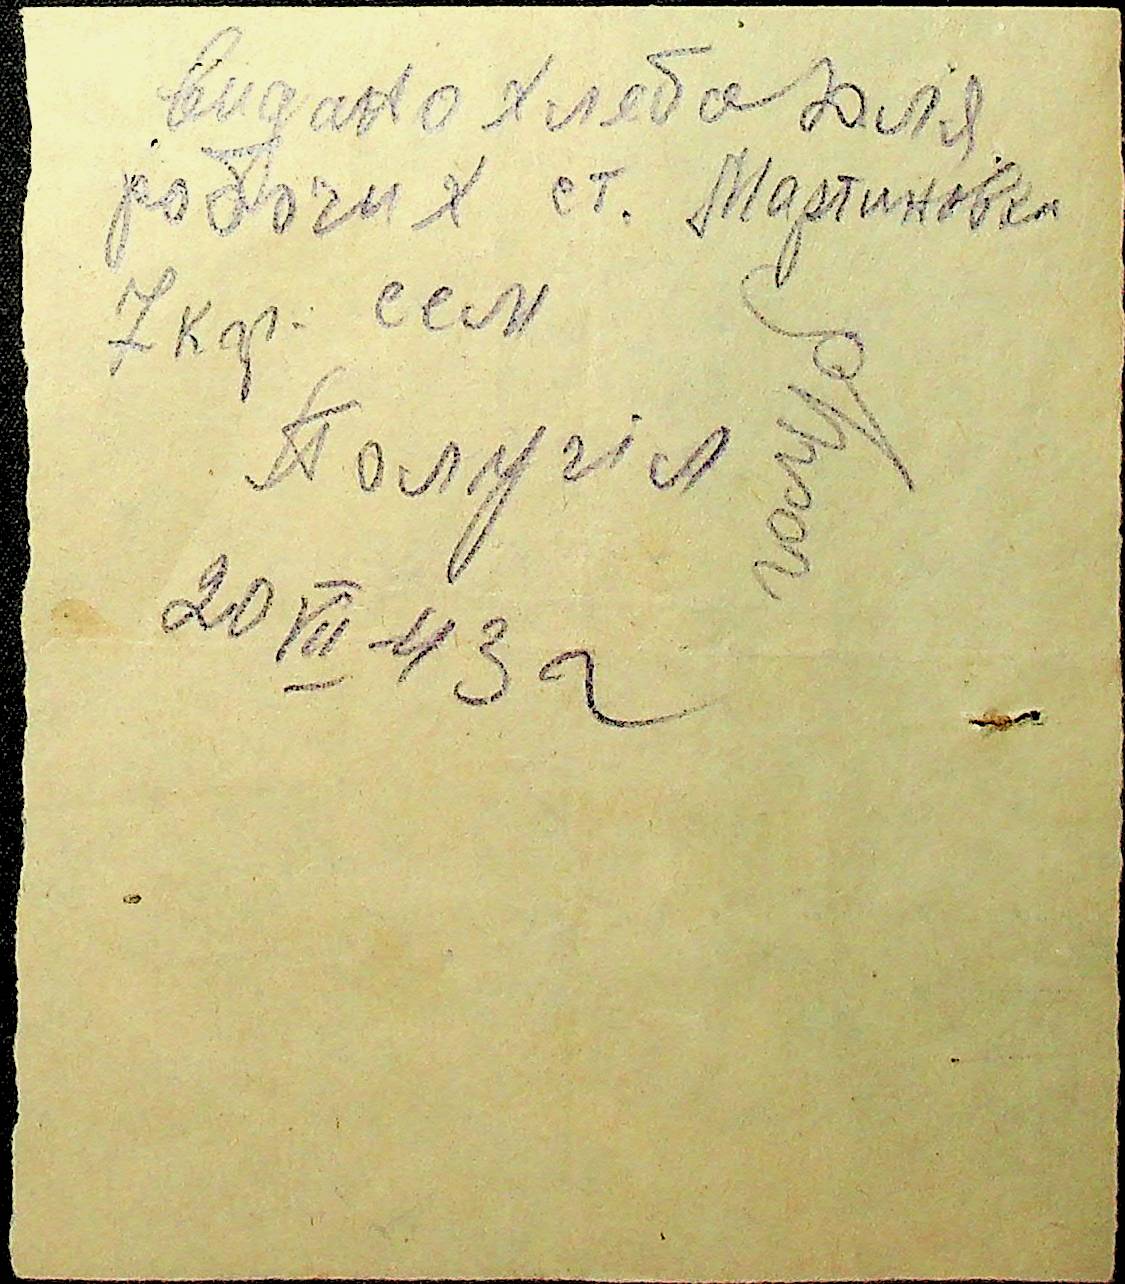 видано хлеба для
робочих ст. Мартиновка
7 кгр. сем
Получил
20 VII-43 г